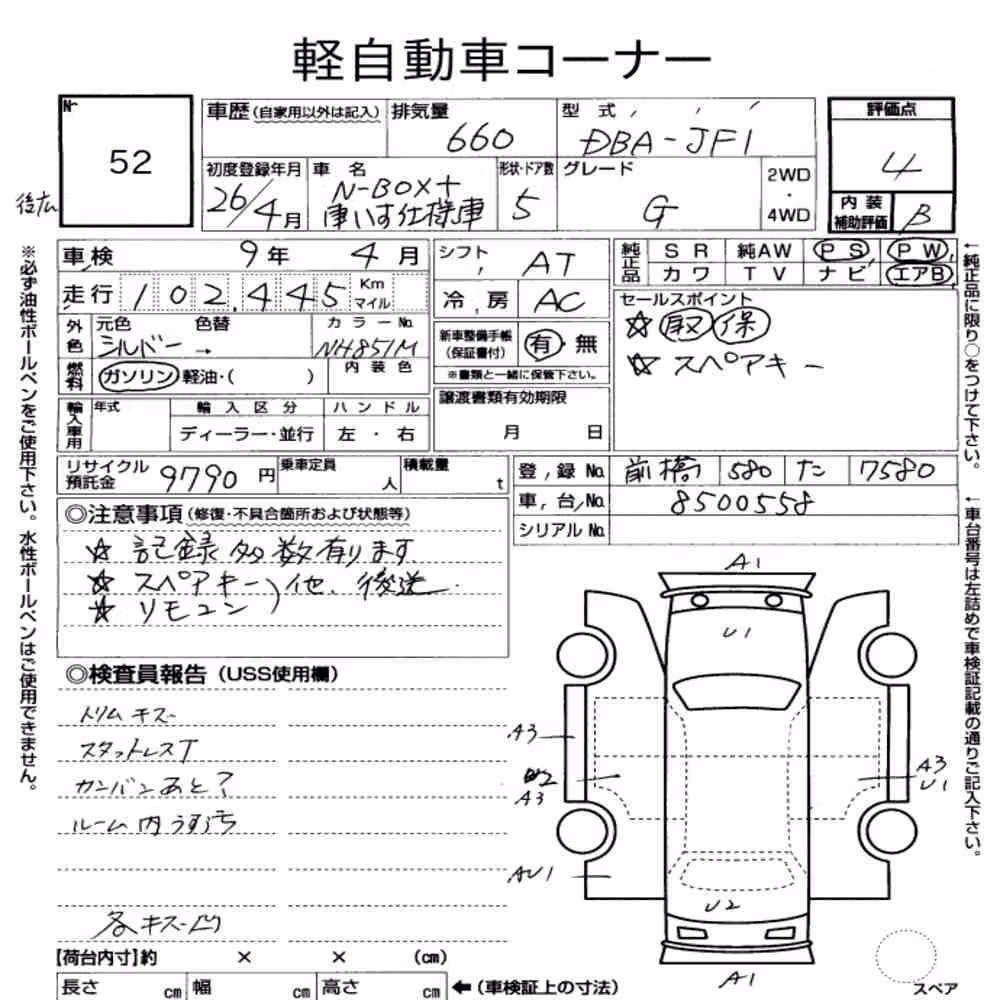 軽自動車コーナー
№
52
後広
車歴(自家用以外は記入)
排気量
660
型式
DBA-JF1
評価点
4
初度登録年月
26/4月
車名
N-BOX+
車いす仕様車
形状・ドア数
5
グレード
G
2WD
・
4WD
内装
補助評価
B
車検 9年 4月
シフト
AT
純正品
SR 純AW PS PW
カワ TV ナビ エアB
走行 102,445 Km
マイル
冷房
AC
セールスポイント
☆ 取 保
☆ スペアキー
外色
元色 色替
シルバー →
カラーNo.
NH851M
新車整備手帳
(保証書付)
有・無
※書類と一緒に保管下さい。
燃料
ガソリン・軽油・( )
内装色
輸入車用
年式
輸入区分
ディーラー・並行
ハンドル
左・右
譲渡書類有効期限
月 日
リサイクル
預託金
9790円
乗車定員
人
積載量
t
登録No. 前橋 580 た 7580
車台No. 8500558
シリアルNo.
◎注意事項(修復・不具合箇所および状態等)
☆ 記録多数有ります
☆ スペアキー)他、後送
☆ リモコン)
◎検査員報告(USS使用欄)
トリムキズ
スタットレスT
カンバンあと?
ルーム内うす汚
各キズ凹
【荷台内寸】約 × × (cm)
長さ cm 幅 cm 高さ cm
←(車検証上の寸法)
A1
U1
A3
A3
A3
U1
AU1
U2
A1
スペア
※必ず油性ボールペンをご使用下さい。水性ボールペンはご使用できません。
←純正品に限り○をつけて下さい。
←車台番号は左詰めで車検証記載の通りご記入下さい。